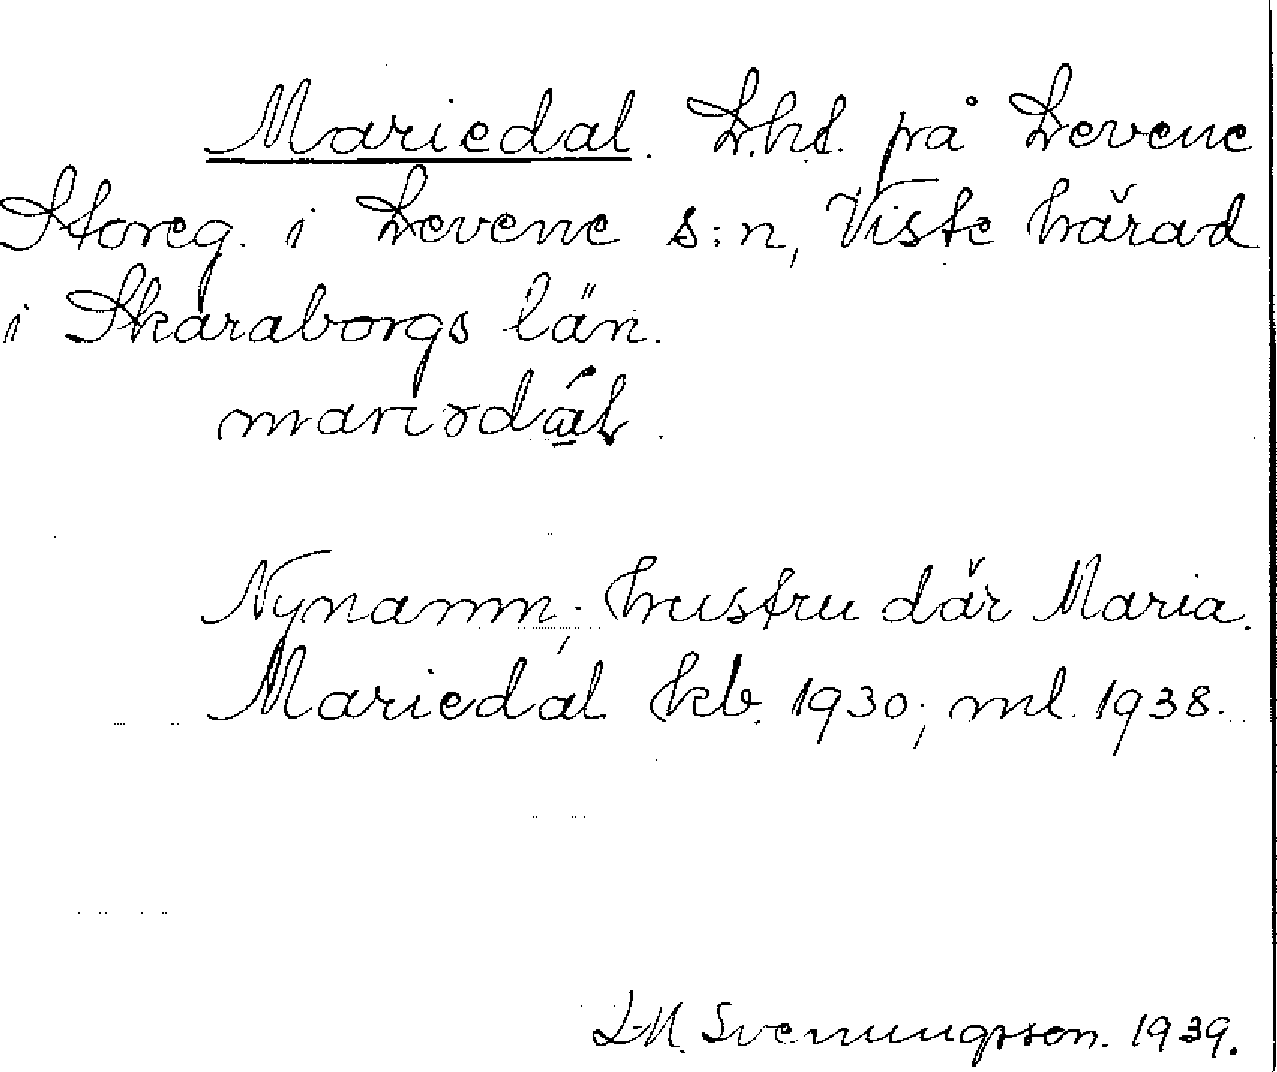 Mariedal. L.hl. på Levene
Storeg. i Levene s:n, Viste härad
i Skaraborgs län.
mariədál.
Nynamn; hustru där Maria.
Mariedal kb. 1930; ml. 1938.
Svenungsson. 1939.